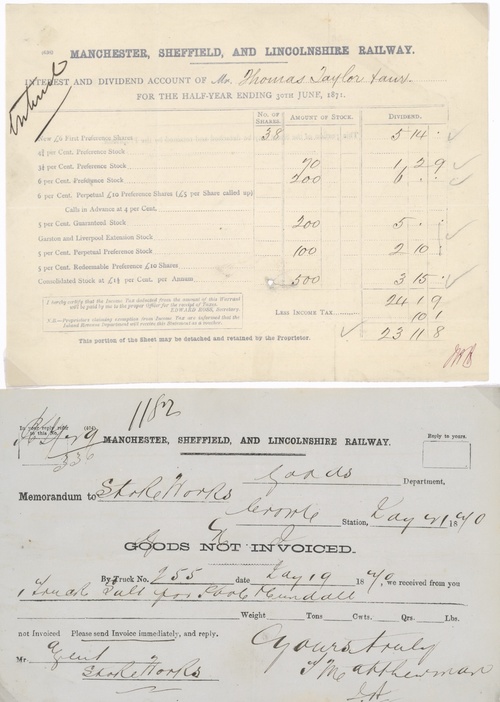 (221)
MANCHESTER, SHEFFIELD, AND LINCOLNSHIRE RAILWAY.
Interest
INTEREST AND DIVIDEND ACCOUNT OF Mr. Thomas Taylor
FOR THE HALF-YEAR ENDING 30TH JUNE, 1871.
No. of Shares. AMOUNT OF STOCK. DIVIDEND.
New £6 First Preference Shares 38 5 14 .
Cent. Preference Stock
3½ per Cent. Preference Stock 70 1 2 9
6 per Cent. Preference Stock 200 6 . .
6 per Cent. Perpetual £10 Preference Shares (£5 per Share called up)
Calls in Advance at 4 per Cent.
5 per Cent. Guaranteed Stock 200 5 . .
Garston and Liverpool Extension Stock
5 per Cent. Perpetual Preference Stock 100 2 10 .
5 per Cent. Redeemable Preference £10 Shares
Consolidated Stock at £1½ per Cent. per Annum 500 3 15 .
24 1 9
LESS INCOME TAX 10 1
23 11 8
I hereby certify that the Income Tax deducted from the amount of this Warrant
will be paid by me to the proper Officer for the receipt of Taxes.
EDWARD ROSS, Secretary.
N.B.—Proprietors claiming exemption from Income Tax are informed that the
Inland Revenue Department will receive this Statement as a voucher.
This portion of the Sheet may be detached and retained by the Proprietor.
1182
In your reply refer
to this No.
336
MANCHESTER, SHEFFIELD, AND LINCOLNSHIRE RAILWAY.
Reply to yours.
Goods Department,
Memorandum to Stoke Works
Crowle Station, May 21 1870
GOODS NOT INVOICED.
By Truck No. 255 date May 19 1870, we received from you
1 Truck Salt for
Weight Tons Cwts. Qrs. Lbs.
not Invoiced Please send Invoice immediately, and reply.
Yours truly
Mr. Agent
Stoke Works
T Matthewman